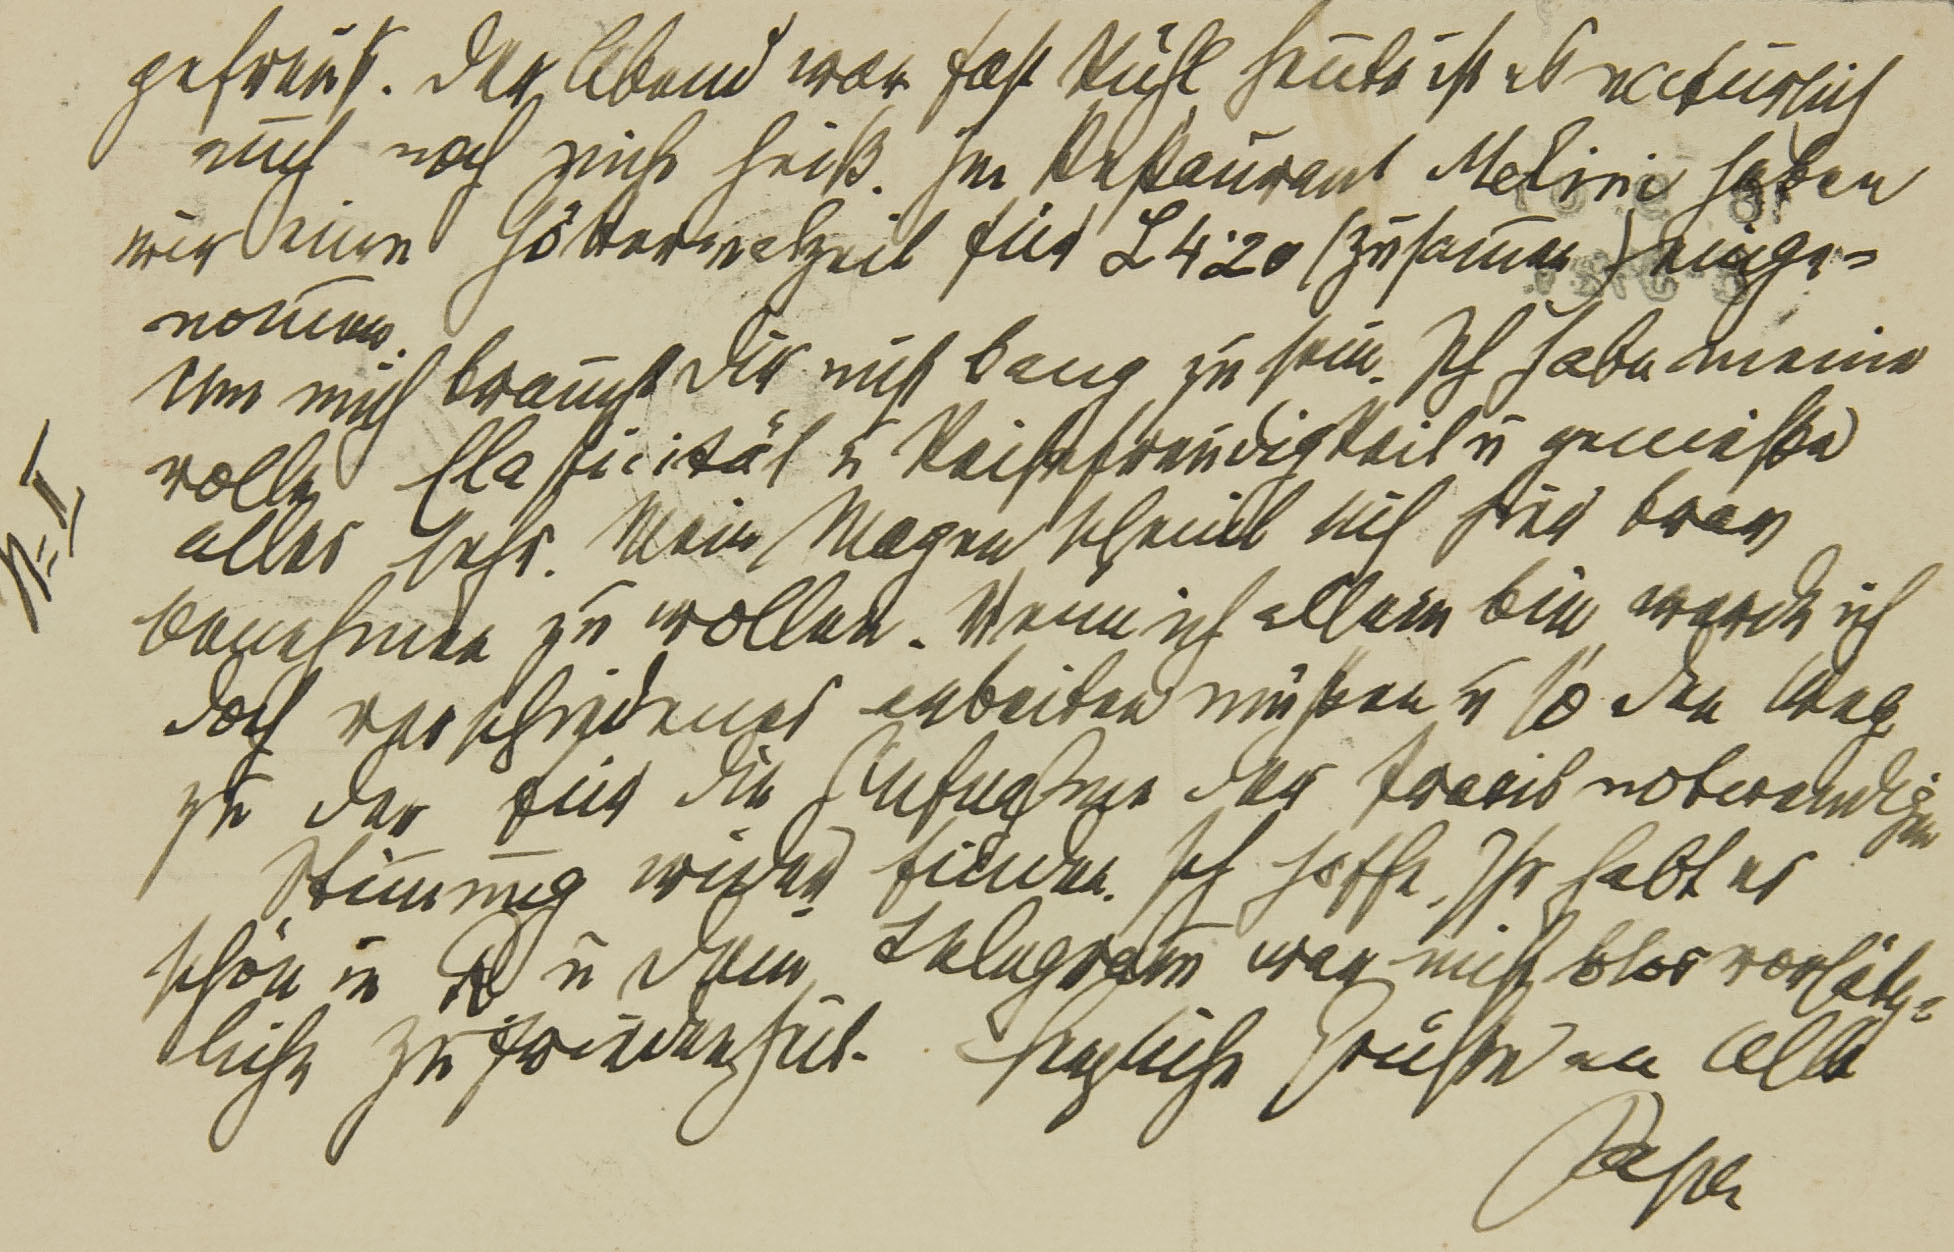 gefreut. Der Abend war fast kühl heute ist es natürlich
auch noch nicht heiß. Im Restaurant Melini haben
wir eine Göttermalzeit für L 4·20 (zusamen) einge-
nomen.
Um mich brauchst Du nicht bang zu sein. Ich habe meine
volle Elasticität u Reisefreudigkeit u genieße
alles sehr. Mein Magen scheint sich hier brav
benehmen zu wollen. Wenn ich allein bin werde ich
doch verschiedenes arbeiten müßen u so den Weg
zu der für die Aufnahme der Praxis notwendigen
Stimung wieder finden. Ich hoffe, Ihr habt es
schön in R u dein Telegram war nicht blos vorsätz-
liche Zufriedenheit. Herzliche Grüße an Alle
Papa
N= I